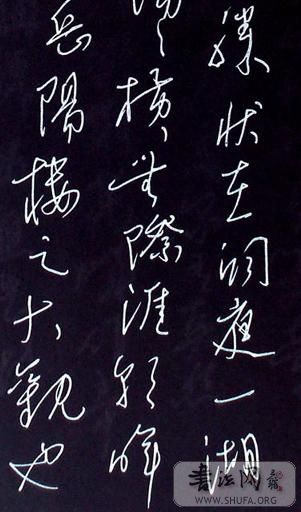 勝狀在洞庭一湖
橫無際涯朝暉
岳陽樓之大觀也
書法网
WWW.SHUFA.ORG